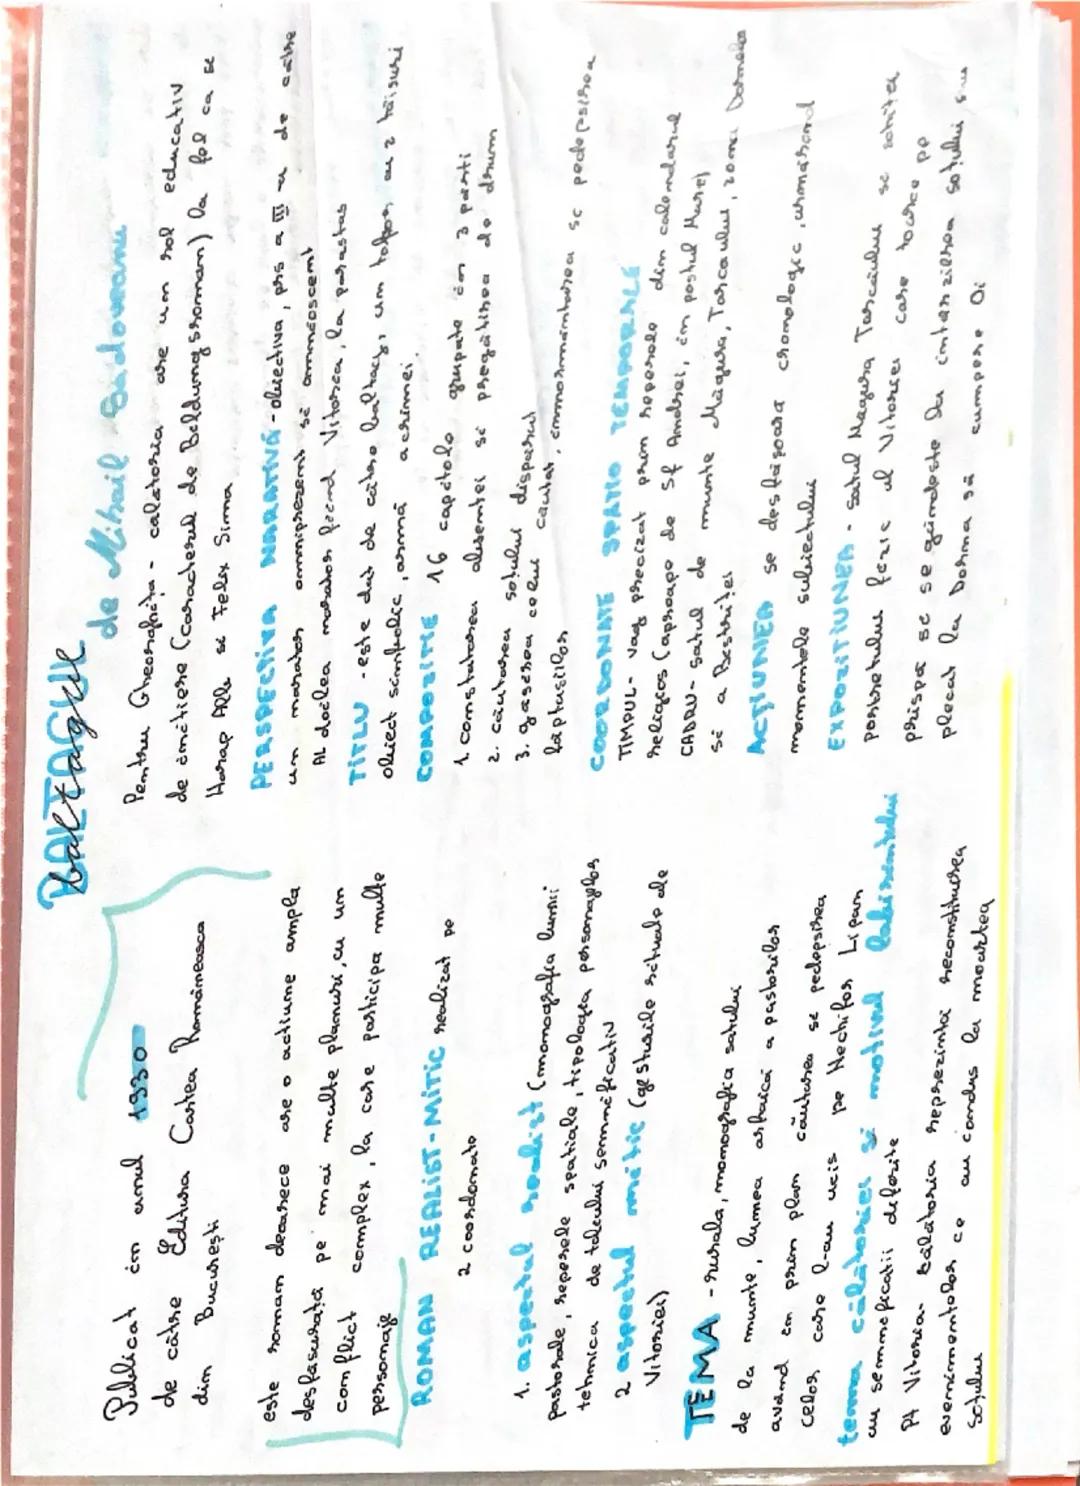 BALTAGUL
baltagul
de Mihail Sadoveanu
Publicat în anul 1930
de către Editura Cartea Românească
din București
este roman deoarece are o acțiune amplă
desfășurată pe mai multe planuri, cu un
conflict complex, la care participa multe
personaje
ROMAN REALIST-MITIC realizat pe
2 coordonate
1. aspectul realist (monografia lumii
pastorale, reperele spațiale, tipologia personajelor
tehnica de talcului semnificativ
2 aspectul mitic (gesturile rituale ale
Vitoriei)
TEMA - rurala, monografia satului
de la munte, lumea arhaică a pastorilor
având în prim plan căutarea se pedepsirea
celor care l-au ucis pe Nechifor Lipan
tema călătoriei și motivul labirintului
au semnificatii diferite
Pt Vitoria - călătoria reprezintă reconstituirea
evenimentelor ce au condus la moartea
soțului
Pentru Gheorghița - calatoria are un rol educativ
de inițiere (caracterul de Bildungsroman) la fel ca și
Harap Alb și Felix Sima
PERSPECTIVA NARATIVĂ - obiectiva, prs a III-a de către
un narator omniprezent și omniscent
Al doilea narator fiind Vitoria, la parastas
TITLU - este dat de către baltag, un topor cu 2 tăisuri
obiect simbolic, armă a crimei.
COMPOZITIE 16 capitole grupate în 3 părți
1. constatarea absentei și pregătirea de drum
2. căutarea soțului dispărut
3. găsirea celui căutat, înmormântarea și pedepsirea
făptașilor
COORDONATE SPATIO TEMPORALE
TIMPUL - vag precizat prin reperele din calendarul
religios (aproape de Sf Andrei, în postul Mare)
CADRU - satul de munte Măgura, Tarcaului, zona Dornelor
și a Bistriței
ACȚIUNEA se desfășoară cronologic, urmărind
momentele subiectului
EXPOZIȚIUNEA - satul Magura Tarcăului se schița
portretului fizic al Vitoriei care toarce pe
prispă și se gândeste la intarzierea soțului său
plecat la Dorna să cumpere Oi